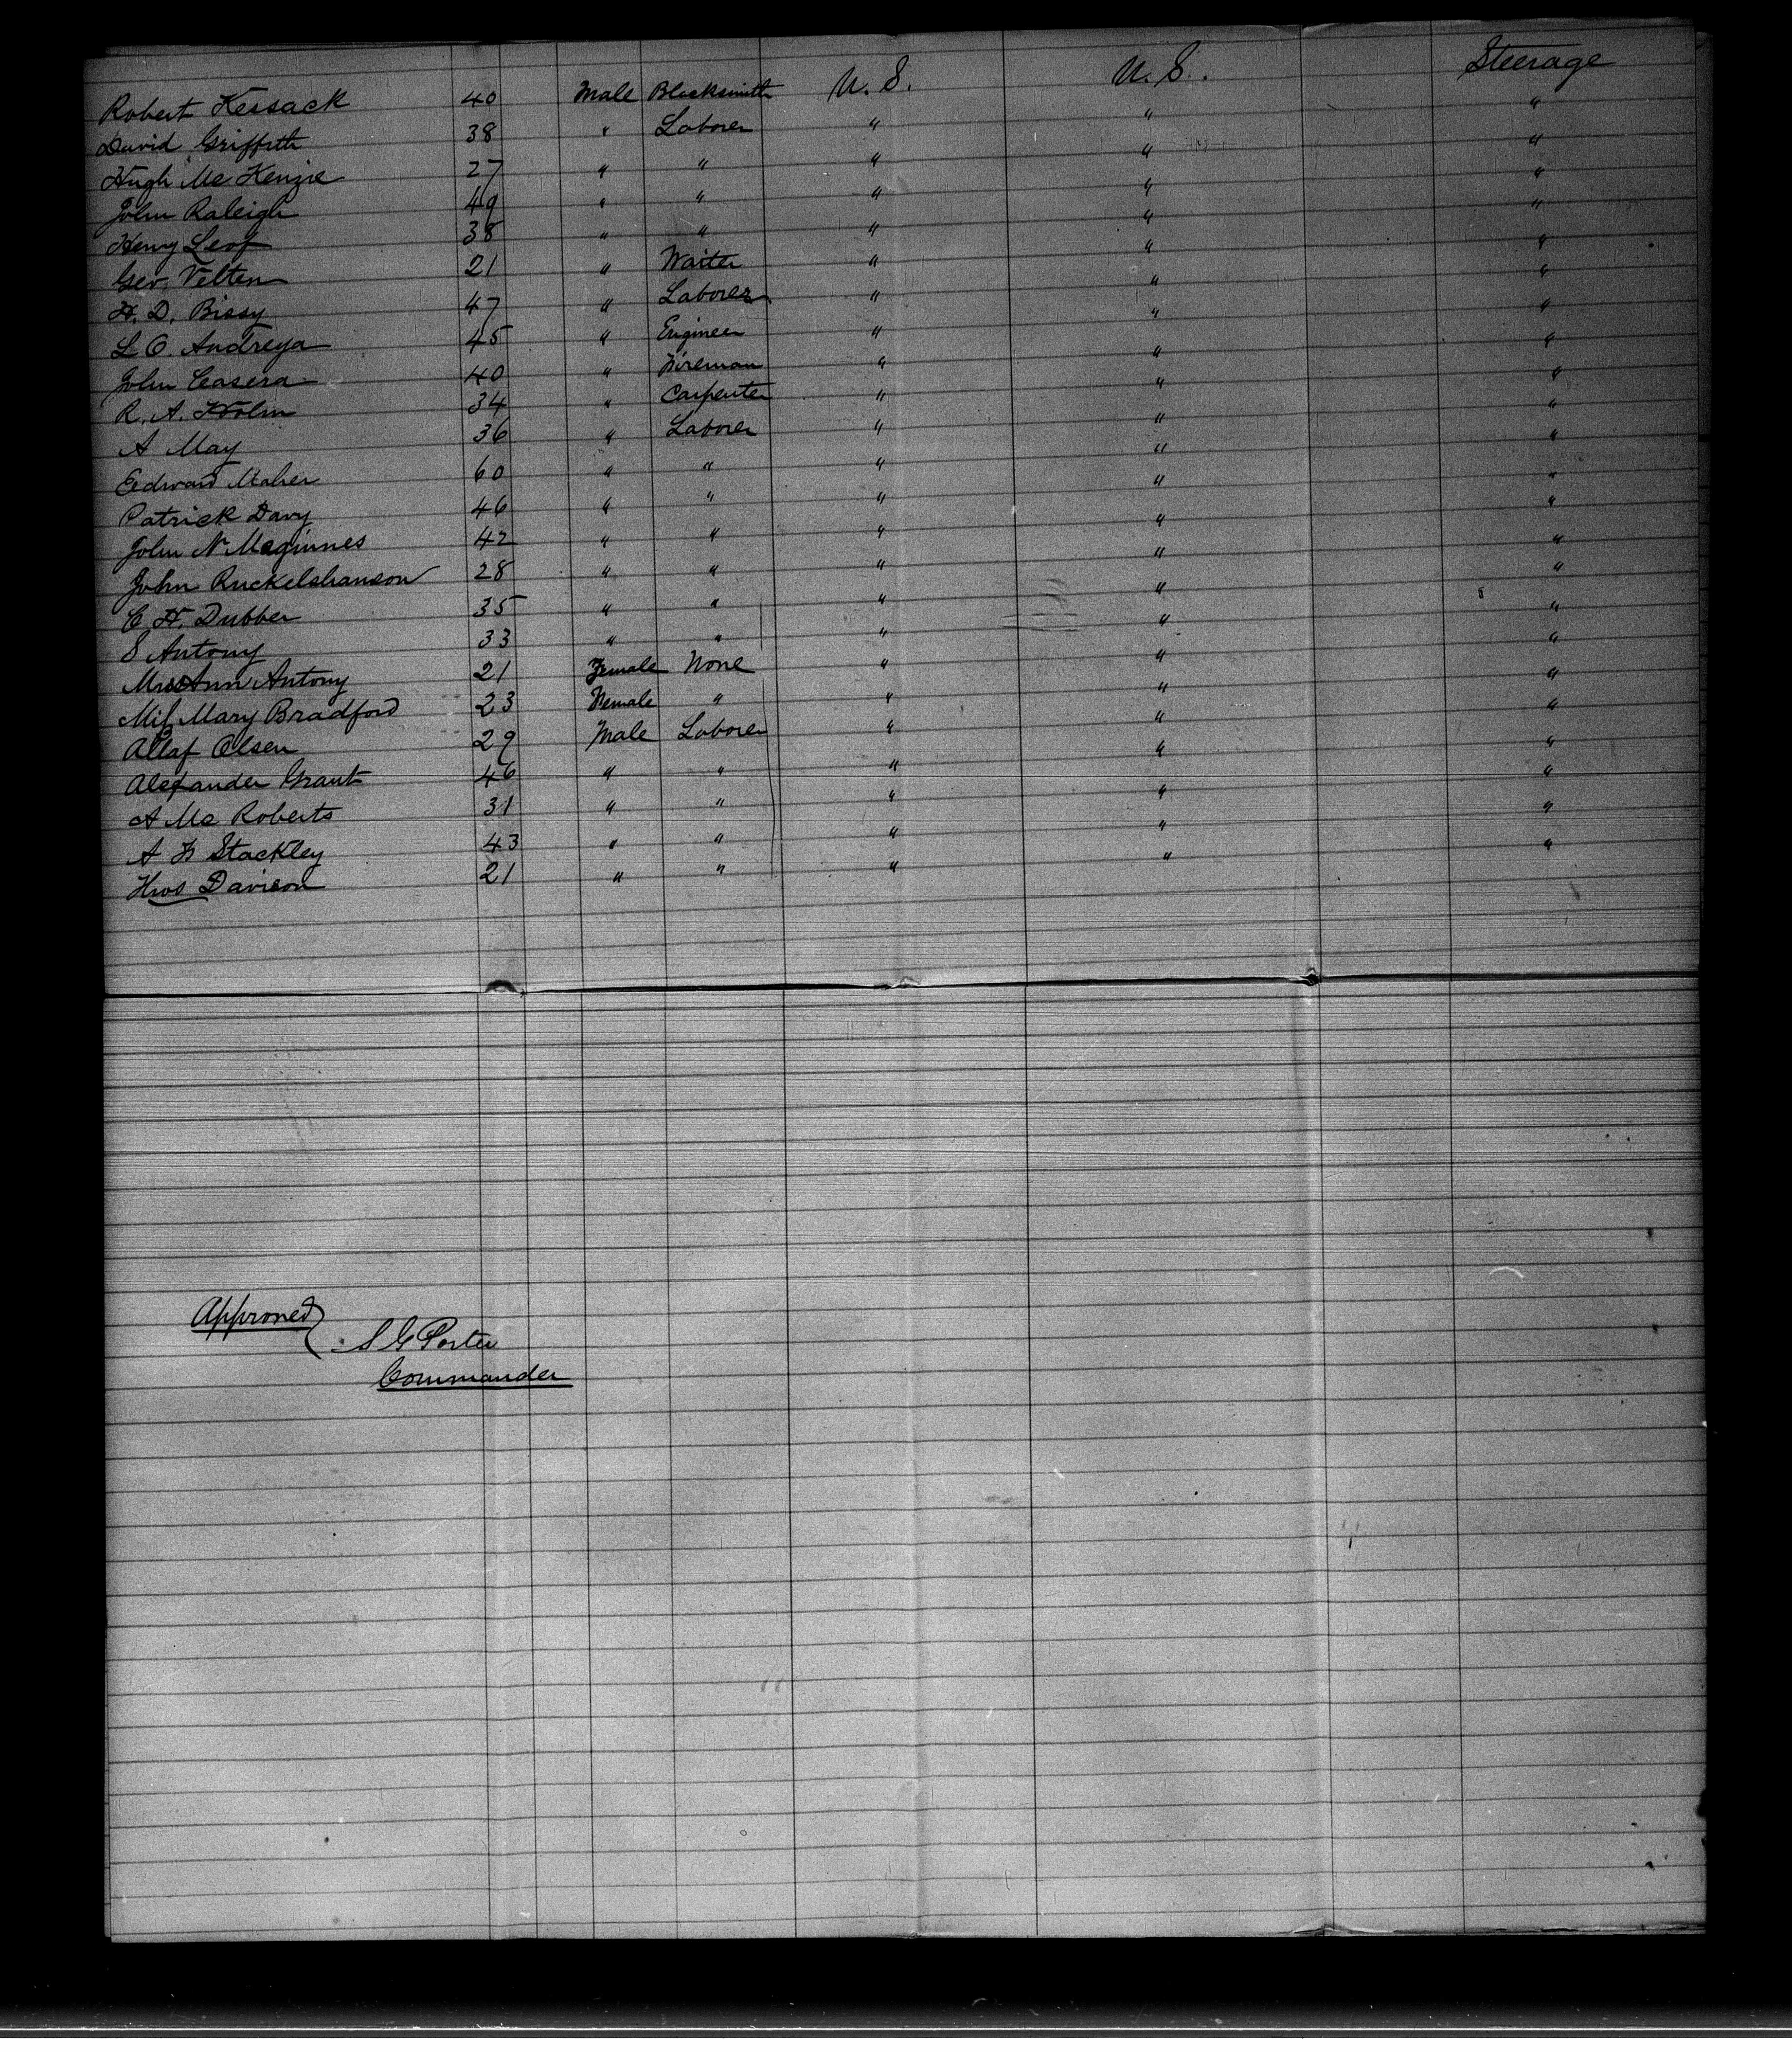 Robert Kessack 40 Male Blacksmith U. S. U. S. Steerage
David Griffith 38 " Laborer " " "
Hugh Mc Kenzie 27 " " " " "
John Raleigh 49 " " " " "
Henry Leof 38 " " " " "
Geo. Velten 21 " Waiter " " "
H. D. Bissy 47 " Laborer " " "
L O. Andreya 45 " Engineer " " "
John Casera 40 " Fireman " " "
R. A. Holm 34 " Carpenter " " "
A May 36 " Laborer " " "
Edward Maher 60 " " " " "
Patrick Davy 46 " " " " "
John N Meginnes 42 " " " " "
John Ruckelshanson 28 " " " " "
C H. Dubber 35 " " " " "
S Antony 33 " " " " "
Mrs Ann Antony 21 Female None " " "
Miss Mary Bradford 23 Female " " " "
Allaf Olsen 29 Male Laborer " " "
Alexander Grant 46 " " " " "
A Mc Roberts 31 " " " " "
A F Stackley 43 " " " " "
Davison 21 " " " " "
Approved
S G Porter
Commander